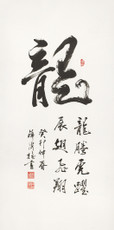 龍
龍騰虎躍
展翅飛翔
癸卯仲春